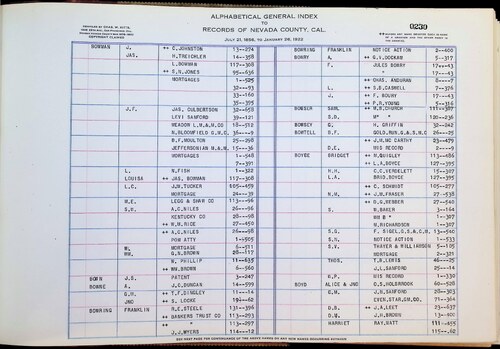 ALPHABETICAL GENERAL INDEX
TO
RECORDS OF NEVADA COUNTY, CAL.
JULY 21, 1856, TO JANUARY 26, 1932
0230
BOWMAN J. ++ C.JOHNSTON 13--274
JAS. H.TREICHLER 14--358
L.BOWMAN 117--308
++ S.N.JONES 95--636
MORTGAGES 1--525
32---93
33--160
35--395
J.F. JAS. CULBERTSON 32--658
LEVI SANFORD 39--121
MEADOW L.M.& M.CO 18--512
B.F.MOULTON 25--398
JEFFERSONIAN M.& M. 15---36
MORTGAGES 1--548
7--391
L. N.FISH 1--322
LOUISA ++ JAS. BOWMAN 117--308
L.C. J.M.TUCKER 105--459
MORTGAGE 24---39
M.E. LEGG & SHAW CO 113--96
S.K. A.C.NILES 26---96
KENTUCKY CO 28---98
++ W.M.RICE 27--450
++ A.C.NILES 26---98
POW ATTY 1--505
WL MORTGAGE 6--511
WM. G.N.BROWN 28--117
N. PHILLIP 11--635
++ WM.BROWN 6--560
BOWN J.S. PATENT 3--247
BOWNE A. J.C.DUNCAN 14--599
G.H. ++ T.F.DINGLEY 11--14
JNO ++ S. LOCKE 19--62
BOWRING FRANKLIN H.E.STEELE 131--396
++ BANKERS TRUST CO 113--293
++ " 113--297
J.J.MYERS 114--12
BOWRING FRANKLIN NOTICE ACTION 2--400
BOWRY A. ++ G.H.DOCKAM 5--317
F. JULES BOWRY 17--43
" 17--43
++ CHAS. ANDURAN 8---7
++ L.B.CASWELL 7--376
J. ++ F. BOURY 17--43
++ P.H.YOUNG 5--316
BOWSER SAML ++ M.B.CHURCH 11--387
S.D. M* " 120--236
BOWSEY G. H. GRIFFIN 32--242
BOWTELL H.F. GOLD.RUN.G.& S.M.C 26--25
++ J.M.MC CARTHY 23--479
D.E. HIS RECORD 2---9
BOYCE BRIDGET ++ M.QUIGLEY 113--486
++ L.A.BOYCE 127--395
H.H. C.E.VERDELETT 15--307
L.A. BRID.BOYCE 127--395
++ C. SCHMIDT 105--277
N.M. ++ J.M.FRASER 27--538
++ G.G.REBBER 27--540
S. W.BAKER 3--164
WM B " 1--307
M.RICHARDSON 1--307
S.G. F. SIGEL,G.S.& C.M. 13--540
S.N. NOTICE ACTION 1--533
S.V. THAYER & WILLIARDSON 5--175
MORTGAGE 2--321
THOS. T.R.LEWIS 46--25
J.L.SANFORD 25--14
W.P. HIS RECORD 1--330
BOYD ALICE & JNO O.S.HOLBROOK 60--528
G.M. J.H.SANFORD 28--303
EVEN.STAR,GM.CO. 71--364
G.B. ++ J.A.LEET 23--637
O.M. J.H.BROWN 13--400
HARRIET RAY.WATT 111--495
115---62